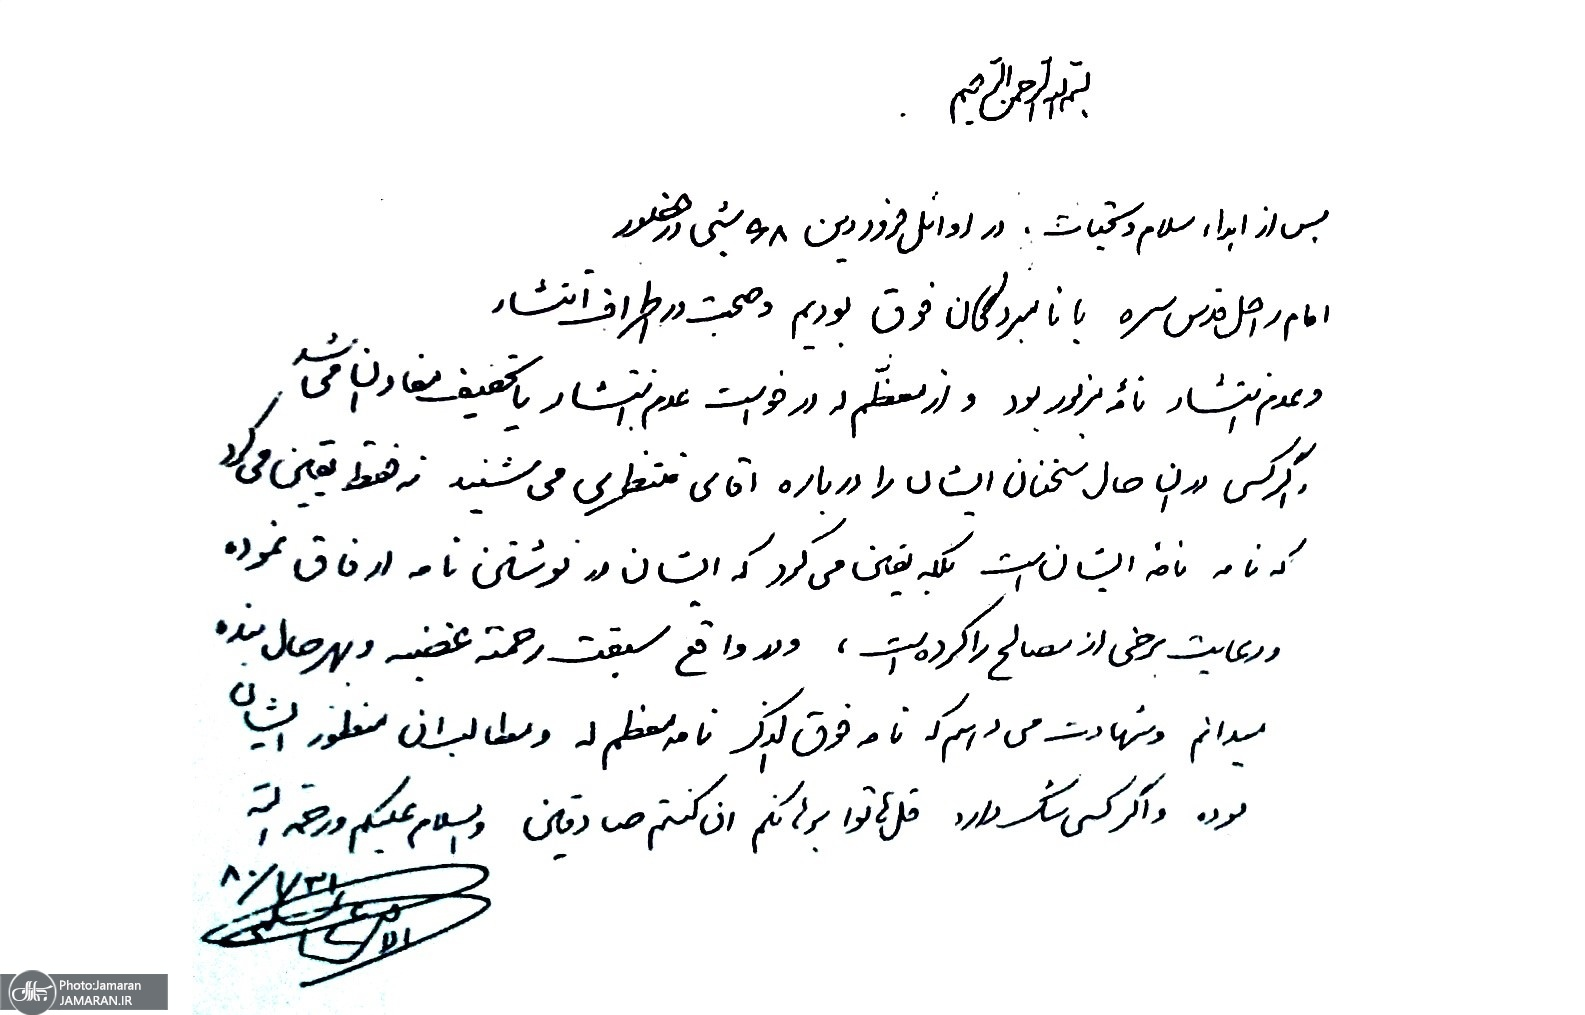 بسم الله الرحمن الرحیم
پس از اهداء سلام و تحیات، در اوائل فروردین ۶۸ شبی در حضور
امام راحل قدس سره با نامبردگان فوق بودیم و صحبت در اطراف انتشار
و عدم انتشار نامهٔ مزبور بود و از معظّم له درخواست عدم انتشار یا تخفیف مفاد آن می شد
و اگر کسی در آن حال سخنان ایشان را درباره آقای منتظری می شنید نه فقط یقین می کرد
که نامه نامهٔ ایشان است بلکه یقین می کرد که ایشان در نوشتن نامه ارفاق نموده
و رعایت برخی از مصالح را کرده است، و در واقع سبقت رحمته غضبه و بهر حال بنده
میدانم و شهادت می دهم که نامه فوق الذکر نامه معظم له و مطالب آن منظور ایشان
بوده و اگر کسی شک دارد قل هاتوا برهانکم ان کنتم صادقین والسلام علیکم و رحمة الله
۸۰/۱/۳۱
Photo:Jamaran
JAMARAN.IR